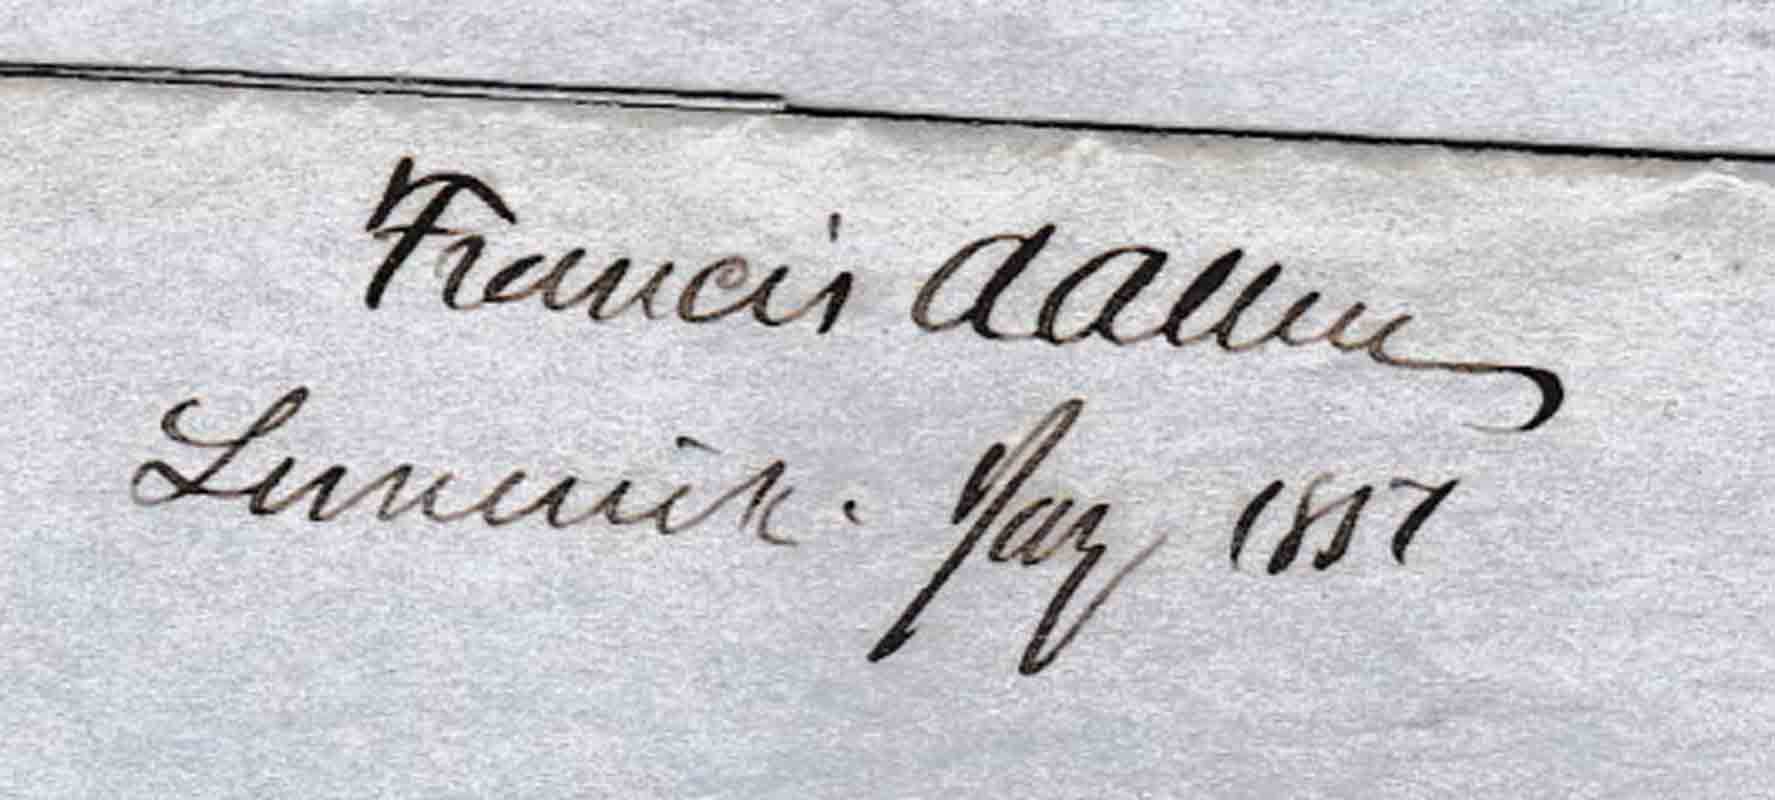 Francis A Allen
Limerick. May 1857